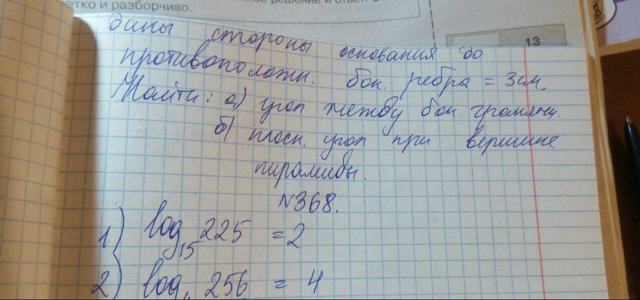 етко и разборчиво.
решение и ответ.
13
дины стороны основания до
противоположн. бок. ребра = 3см.
Найти: а) угол между бок. гранями.
б) плоск. угол при вершине
пирамиды.
№368.
1) log₁₅ 225 = 2
2) log 256 = 4